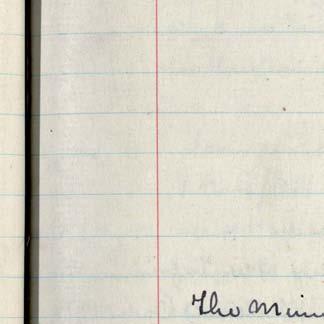 The Min